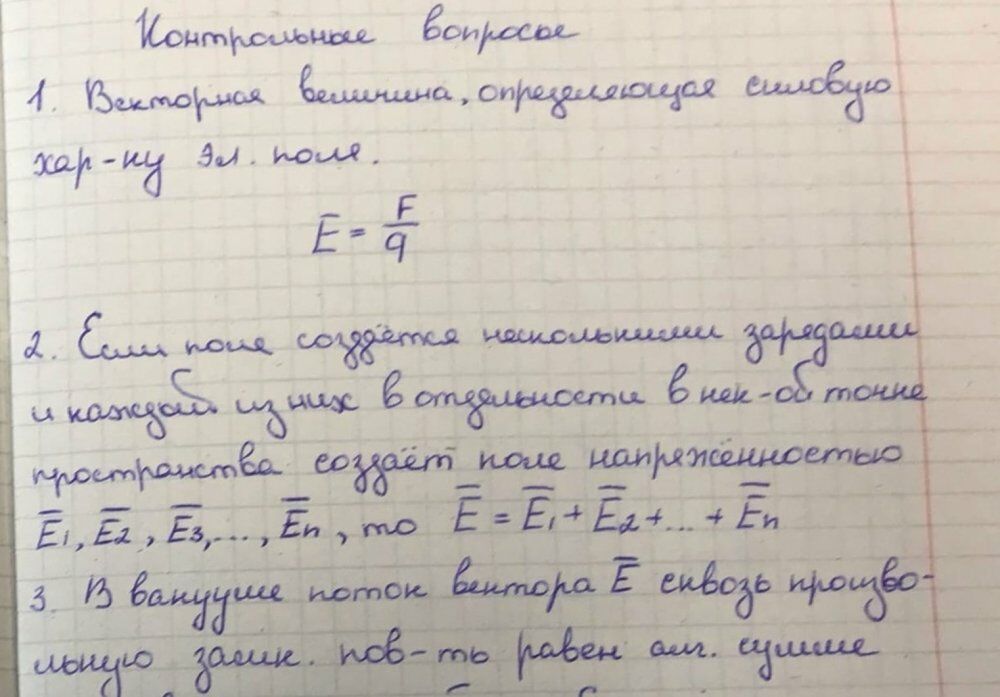 Контрольные вопросы
1. Векторная величина, определяющая силовую
хар-ку эл. поля.
E = F/q
2. Если поле создаётся несколькими зарядами
и каждый из них в отдельности в нек-об точке
пространства создаёт поле напряжённостью
E̅₁, E̅₂, E̅₃, ..., E̅n, то E̅ = E̅₁ + E̅₂ + ... + E̅n
3. В вакууме поток вектора E̅ сквозь произво-
льную замк. пов-ть равен алг. сумме